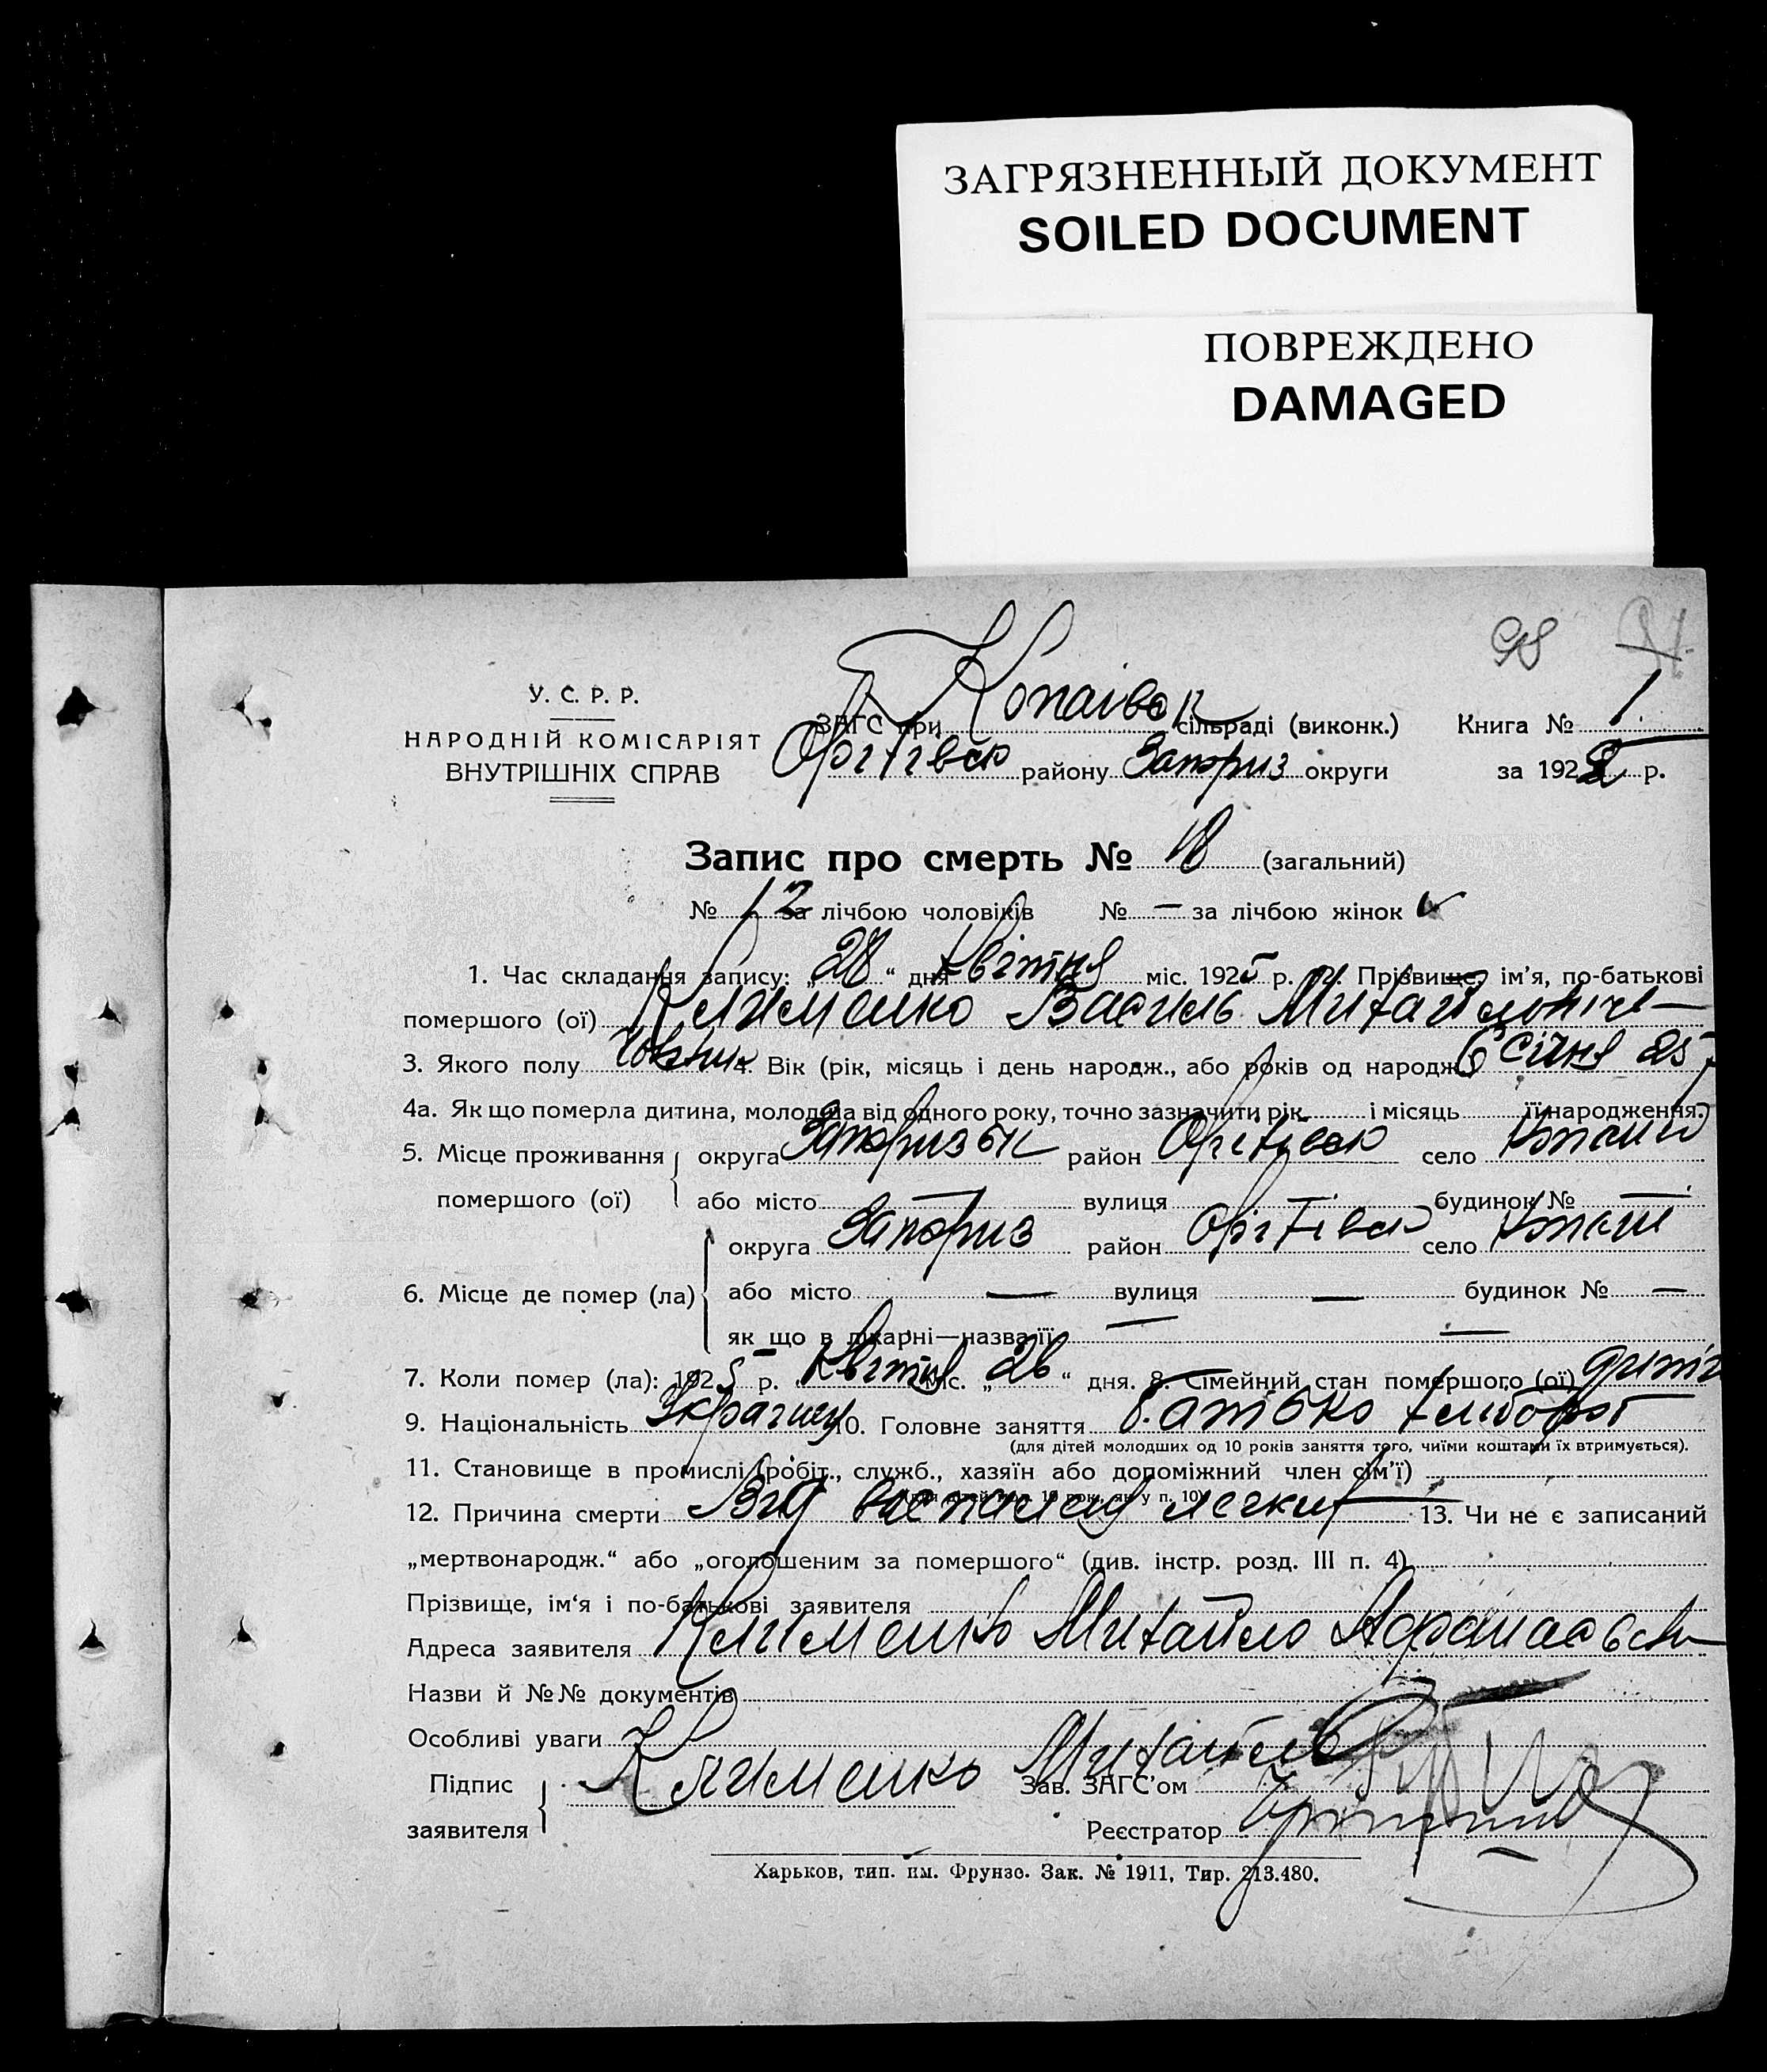 ЗАГРЯЗНЕННЫЙ ДОКУМЕНТ
SOILED DOCUMENT
ПОВРЕЖДЕНО
DAMAGED
98
У. С. Р. Р.
НАРОДНІЙ КОМІСАРІЯТ
ВНУТРІШНІХ СПРАВ
ЗАГС при Копаівск сільраді (виконк.) Книга № 1
Оріхівск району Запоріз округи за 1925 р.
Запис про смерть № 18 (загальний)
№ 12 за лічбою чоловіків № — за лічбою жінок
1. Час складання запису: „28“ дня Квітня міс. 1925 р. 2. Прізвище, ім'я, по-батькові
помершого (ої) Клименко Василь Михайловіч
3. Якого полу 4. Вік (рік, місяць і день народж., або років од народж.) 6 Січня 25
4а. Як що померла дитина, молодша від одного року, точно зазначити рік і місяць її народження.
5. Місце проживання округа Запоризьк район Оріхівск село Копані
помершого (ої) або місто — вулиця — будинок № —
округа Запориз район Оріхівск село Копані
6. Місце де помер (ла) або місто — вулиця — будинок № —
як що в лікарні—назва її — —
7. Коли помер (ла): 1925 р. Квітня міс. „26“ дня. 8. Сімейний стан помершого (ої) дитіна
9. Національність 10. Головне заняття батько хлибороб
(для дітей молодших од 10 років заняття того, чиїми коштами їх втримується).
11. Становище в промислі (робіт., служб., хазяїн або допоміжний член сім'ї)
(для дітей мол. 10 рок., як у п. 10)
12. Причина смерти Від воспаления легких 13. Чи не є записаний
„мертвонародж.“ або „оголошеним за помершого“ (див. інстр. розд. III п. 4)
Прізвище, ім'я і по-батькові заявителя
Адреса заявителя Клименко Михайло Афанасьевич
Назви й №№ документів
Особливі уваги
Підпис Клименко Михайло Зав. ЗАГС'ом
заявителя Реєстратор
Харьков, тип. им. Фрунзе. Зак. № 1911, Тир. 213.480.